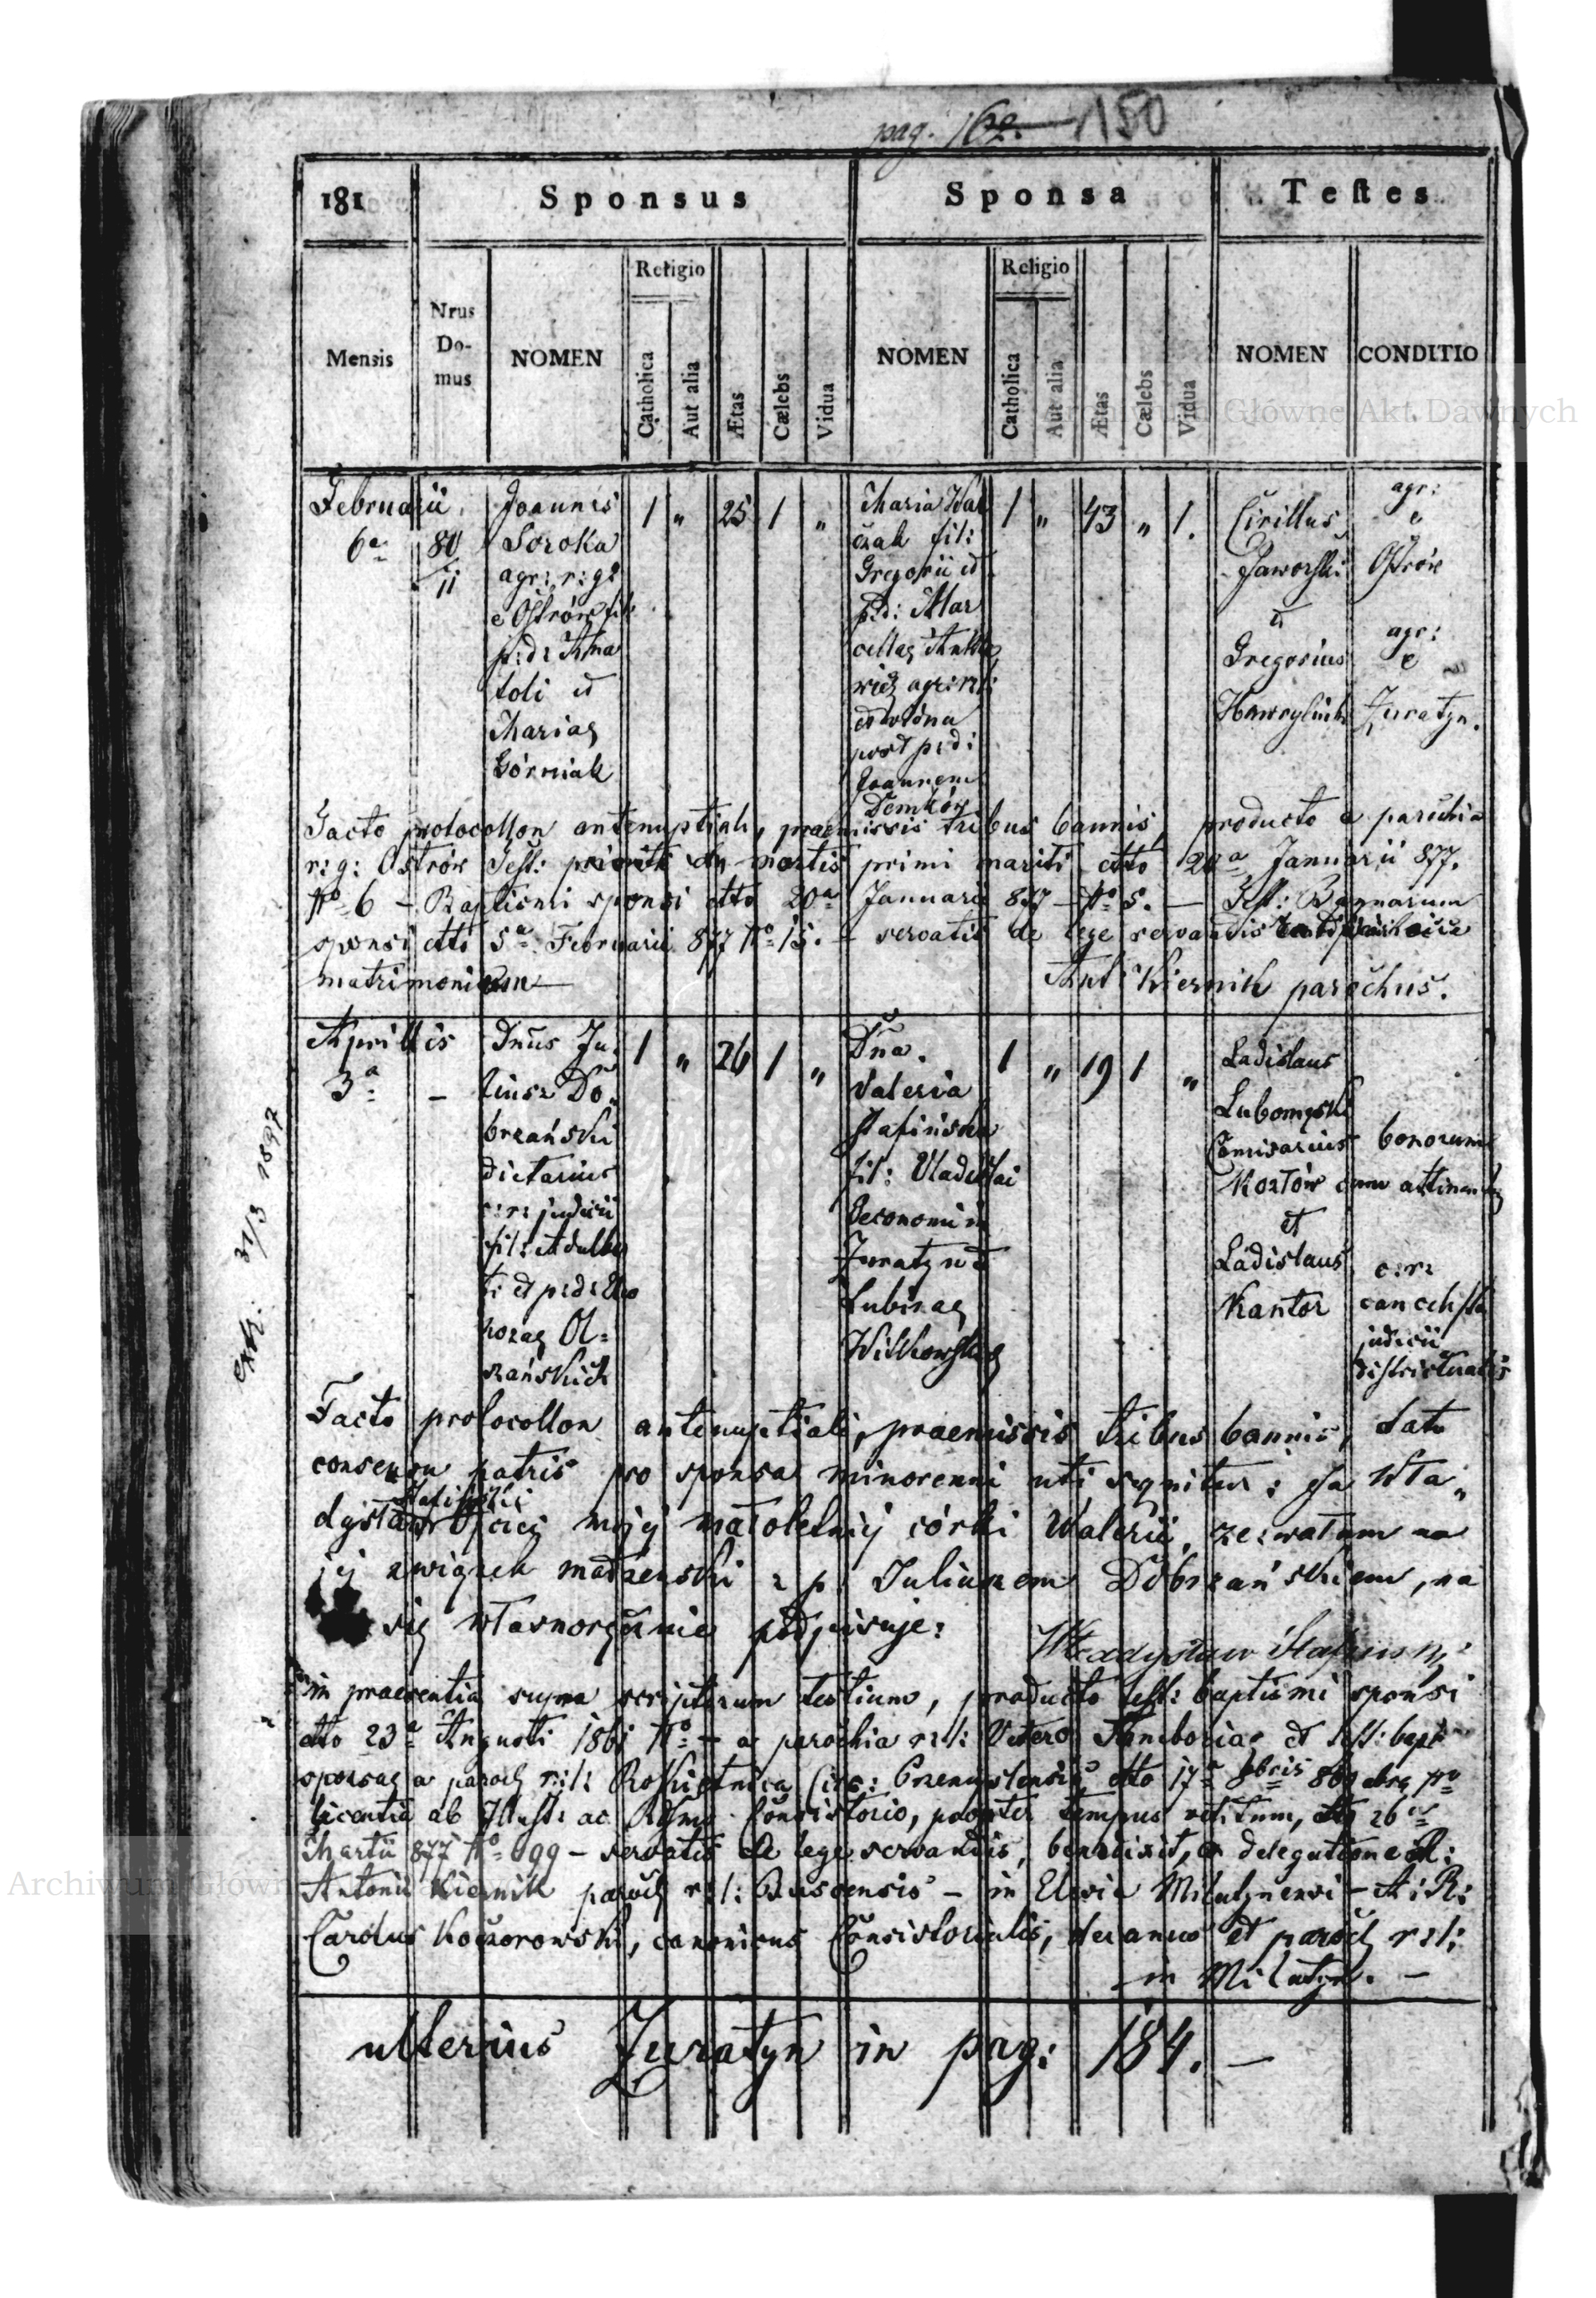 pag. 162. 150
181 Sponsus Sponsa Teſtes
Mensis Nrus Domus NOMEN Religio Catholica Aut alia Ætas Cælebs Vidua NOMEN Religio Catholica Aut alia Ætas Cælebs Vidua NOMEN CONDITIO
Archiwum Główne Akt Dawnych
Februarii
6a
80
11
Joannes
Soroka
agr: r: g:
e Ostrów fil:
p: d: Ana
toli et
Mariae
Górniak
1 " 25 1 "
Maria Wal
czak fil:
Gregorii et
p: d: Mar
cellae
agr: r: l:
post p: d:
Joannem
Demków
1 " 43 " 1.
Cirillus
Jaworski
et
Gregorius
agr:
e
Ostrów
agr:
e
Żuratyn.
Facto protocollon antenuptiali, praemissis tribus bannis, producto a parochia
r: g: Ostrów Test: mortis primi mariti dtto 20a Januarii 877.
No 6 – Baptismi sponsi dtto 20a Januarii 877 – No 5. – Test: Bannorum
sponsi dtto 5a Februarii 877 No 15. – servatis de lege servandis
matrimonium —
Ant Kiernik parochus.
Aprillis
3a
–
Dnus Ju
liusz Do
brzański
dietarius
c: r: judicii
fil: Adalber
ti et p: d: Eleo
norae Ol=
szańskich
1 " 26 1 "
Dna.
Valeria
Stafińska
fil: Vladislai
Oeconomi in
Żuratyn et
Lubinae
Witkowska
1 " 19 1 "
Ladislaus
Lubomęski
Comisarius bonorum
Kozłów cum attinentiis
et
Ladislaus
Kantor
c: r:
cancelista
judicii
districtualis
extr: 31/3 1897
Facto protocollon antenuptiali, praemissis tribus bannis, dato
consensu patris pro sponsa minorenni uti sequitur: Ja Wła„
dysław Stafiński Ojciec mojej małoletniej córki Walerii, zezwalam na
jej związek małżenski z p. Juliuszem Dobrzańskiem, na
się własnoręcznie podpisuje:
Władysław Stafiński
in praesentia supra scriptorum testium, producto test: baptismi sponsi
dtto 23a Augusti 1861 No – a parochia r: l: Vetero Samboriae et test: bapt
sponsae a paroch r: l: Rokietnica Circ: Przemyslensis dtto 17a 8bris 869 absq No
licentia ab Illust: ac Rdmo Consistorio, propter tempus vetitum, dtto 26
Martii 877 No 699 – servatis de lege servandis, benedixit, ex delegatione A: R:
Antonii Kiernik paroch r: l: Buscensis – in Eclesia Milatynensi – A: R:
Carolus Koczorowski, canonicus Consistorialis, decanus et paroch r: l:
in Milatyn. –
ulterius Żuratyn in pag: 184. –
Archiwum Główne